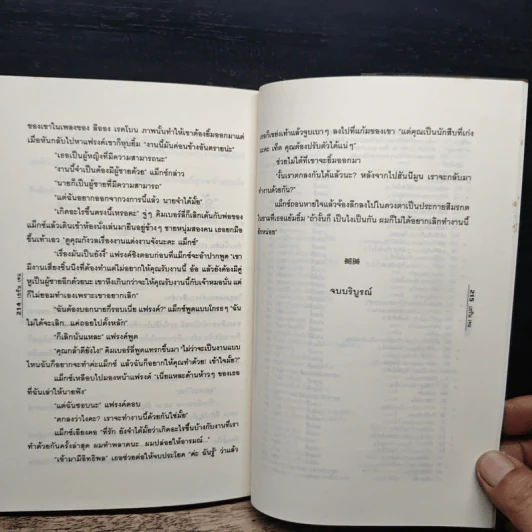 ของเขาในเพลงของ ลีออง เรดโบน ภาพนั้นทำให้เขาต้องยิ้มออกมาแต่
เมื่อหันกลับไปหาแฟรงค์เขาก็หุบยิ้ม "งานนี้มันค่อนข้างอันตรายน่ะ"
"เธอเป็นผู้หญิงที่มีความสามารถนะ"
"งานนี้จำเป็นต้องมีผู้ชายด้วย" แม็กซ์กล่าว
"นายก็เป็นผู้ชายที่มีความสามารถ"
"แต่ฉันอยากออกจากวงการนี้แล้ว นายจำได้มั้ย"
"เกิดอะไรขึ้นตรงนี้เหรอคะ" จู่ๆ คิมเบอร์ลี่ก็เลิกเต้นกับพ่อของ
แม็กซ์แล้วเดินเข้าห้องนั่งเล่นมายืนอยู่ข้างๆ ชายหนุ่มสองคน เธอยกมือ
ขึ้นเท้าเอว "คุณกังวลเรื่องงานแต่งงานจังนะคะ แม็กซ์"
"เรื่องมันเป็นยังงี้" แฟรงค์ชิงตอบก่อนที่แม็กซ์จะอ้าปากพูด "เขา
มีงานเสี่ยงชิ้นนึงที่ต้องทำแต่ไม่อยากให้คุณรับงานนี้ อ้อ แล้วยังต้องมีคู่
หูเป็นผู้ชายอีกด้วยนะ เขาหึงเกินกว่าจะให้คุณรับงานนี้กับเจ้าหมอนั่น แต่
ก็ไม่ยอมทำเองเพราะเขาอยากเลิก"
"ฉันต้องบอกนายกี่รอบเนี่ย แฟรงค์?" แม็กซ์พูดแบบโกรธๆ "ฉัน
ไม่ได้จะเลิก...แค่ถอยไปตั้งหลัก"
"ก็เลิกนั่นแหละ" แฟรงค์พูด
"คุณกล้าดียังไง" คิมเบอร์ลี่พูดแทรกขึ้นมา "ไม่ว่าจะเป็นงานแบบ
ไหนฉันก็อยากจะทำค่ะแม็กซ์ แล้วฉันก็อยากให้คุณทำด้วย! เข้าใจมั้ย?"
แม็กซ์เหลือบไปมองหน้าแฟรงค์ "เนี่ยแหละด้านห้าวๆ ของเธอ
ที่ฉันเล่าให้นายฟัง"
"แต่ฉันชอบนะ" แฟรงค์ตอบ
"ตกลงว่าไงคะ? เราจะทำงานนี้ด้วยกันใช่มั้ย"
แม็กซ์เอียงคอ "ที่รัก ยังจำได้มั้ยว่าเกิดอะไรขึ้นบ้างกับงานที่เรา
ทำด้วยกันครั้งล่าสุด ผมทำพลาดนะ...ผมปล่อยให้อารมณ์..."
"เข้ามามีอิทธิพล" เธอช่วยต่อให้จบประโยค "ค่ะ ฉันรู้" ว่าแล้ว
214
เธอก็เขย่งเท้าแล้วจูบเบาๆ ลงไปที่แก้มของเขา "แต่คุณเป็นนักสืบที่เก่ง
คุณต้องปรับตัวได้แน่ๆ"
ช่วยไม่ได้ที่เขาจะยิ้มออกมา
"งั้นเราตกลงกันได้แล้วนะ? หลังจากไปฮันนีมูน เราจะกลับมา
ด้วยกัน?"
แม็กซ์ถอนหายใจแล้วจ้องลึกลงไปในดวงตาเป็นประกายสีมรกต
"ถ้างั้นก็ เป็นไงเป็นกัน ผมก็ไม่ได้อยากเลิกทำงานนี้
จบบริบูรณ์
215